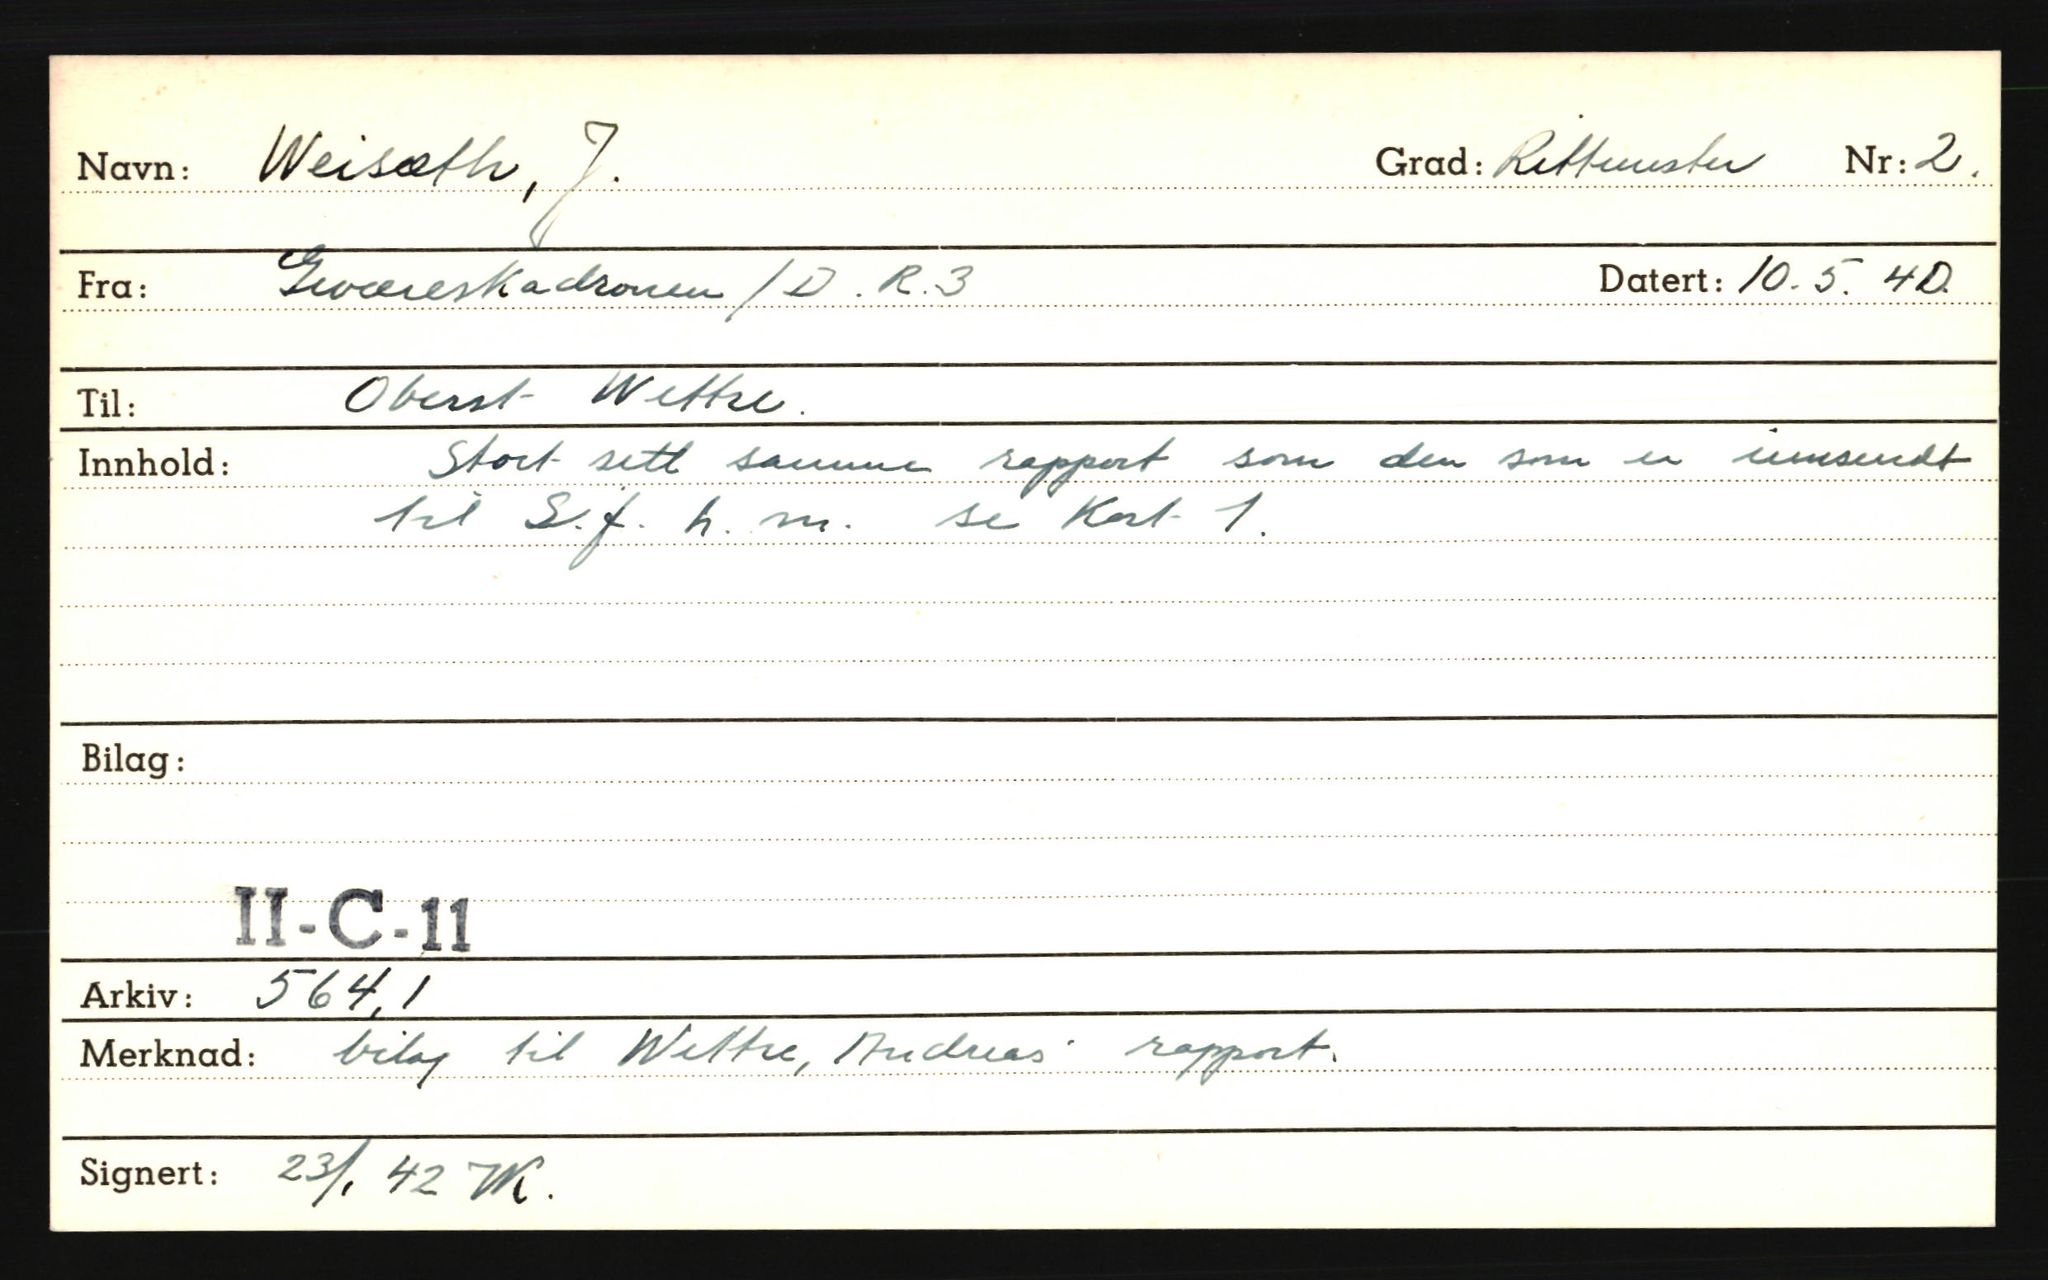 Navn: Weisæth, J. Grad: Rittmester Nr: 2.
Fra: Geværeskadronen / D. R. 3 Datert: 10. 5. 40.
Til: Oberst Wettre.
Innhold: Stort sett samme rapport som den som er innsendt
til S. f. h. m. se Kort 1.
Bilag:
II-C-11
Arkiv: 564,1
Merknad: bilag til Wettre, Andreas' rapport.
Signert: 23/1 42